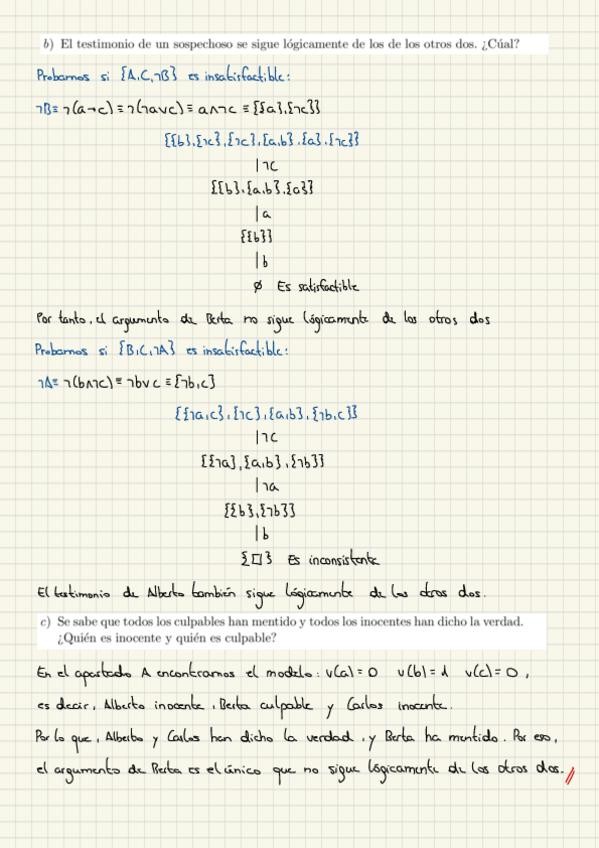 b) El testimonio de un sospechoso se sigue lógicamente de los de los otros dos. ¿Cúal?
Probamos si {A,C,¬B} es insatisfactible:
¬B≡ ¬(a→c) ≡ ¬(¬a∨c) ≡ a∧¬c ≡ {{a},{¬c}}
{{b},{¬c},{¬c},{a,b},{a},{¬c}}
|¬c
{{b},{a,b},{a}}
|a
{{b}}
|b
∅ Es satisfactible
Por tanto, el argumento de Berta no sigue lógicamente de los otros dos
Probamos si {B,C,¬A} es insatisfactible:
¬A≡ ¬(b∧¬c) ≡ ¬b∨c ≡ {¬b,c}
{{¬a,c},{¬c},{a,b},{¬b,c}}
|¬c
{{¬a},{a,b},{¬b}}
|¬a
{{b},{¬b}}
|b
{□} Es inconsistente
El testimonio de Alberto también sigue lógicamente de los otros dos.
c) Se sabe que todos los culpables han mentido y todos los inocentes han dicho la verdad.
¿Quién es inocente y quién es culpable?
En el apartado A encontramos el modelo: v(a)=0 v(b)=1 v(c)=0,
es decir, Alberto inocente, Berta culpable y Carlos inocente.
Por lo que, Alberto y Carlos han dicho la verdad, y Berta ha mentido. Por eso,
el argumento de Berta es el único que no sigue lógicamente de los otros dos.